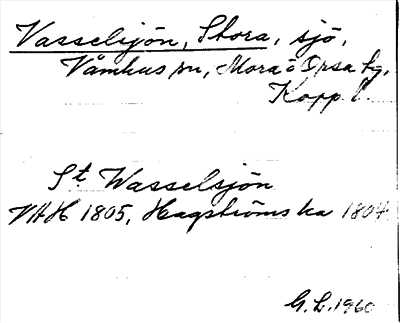 Vasselsjön, Stora, sjö,
Våmhus sn, Mora o Orsa tg,
Kopp l.
St Wasselsjön
VAH 1805, Hagströms ka 1804
G.L. 1960